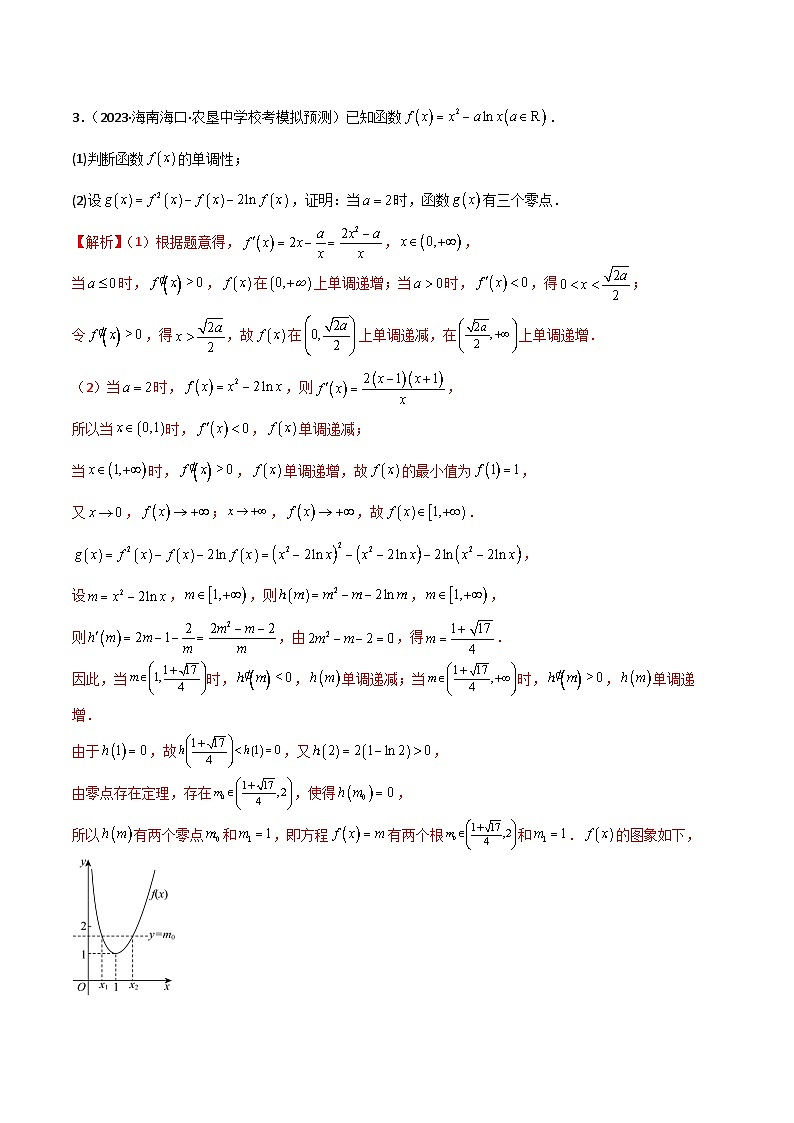 3.（2023·海南海口·农垦中学校考模拟预测）已知函数 f(x)=x²−aln x(a∈R).
(1)判断函数 f(x) 的单调性；
(2)设 g(x)=f²(x)−f(x)−2ln f(x)，证明：当 a=2 时，函数 g(x) 有三个零点.
【解析】（1）根据题意得，f′(x)=2x−a/x=(2x²−a)/x，x∈(0,+∞)，
当 a≤0 时，f′(x)>0，f(x) 在 (0,+∞) 上单调递增；当 a>0 时，f′(x)<0，得 0<x<√(2a)/2；
令 f′(x)>0，得 x>√(2a)/2，故 f(x) 在 (0,√(2a)/2) 上单调递减，在 (√(2a)/2,+∞) 上单调递增.
（2）当 a=2 时，f(x)=x²−2ln x，则 f′(x)=2(x−1)(x+1)/x，
所以当 x∈(0,1) 时，f′(x)<0，f(x) 单调递减；
当 x∈(1,+∞) 时，f′(x)>0，f(x) 单调递增，故 f(x) 的最小值为 f(1)=1，
又 x→0，f(x)→+∞；x→+∞，f(x)→+∞，故 f(x)∈[1,+∞).
g(x)=f²(x)−f(x)−2ln f(x)=(x²−2ln x)²−(x²−2ln x)−2ln(x²−2ln x)，
设 m=x²−2ln x，m∈[1,+∞)，则 h(m)=m²−m−2ln m，m∈[1,+∞)，
则 h′(m)=2m−1−2/m=(2m²−m−2)/m，由 2m²−m−2=0，得 m=(1+√17)/4.
因此，当 m∈(1,(1+√17)/4) 时，h′(m)<0，h(m) 单调递减；当 m∈((1+√17)/4,+∞) 时，h′(m)>0，h(m) 单调递
增.
由于 h(1)=0，故 h((1+√17)/4)<h(1)=0，又 h(2)=2(1−ln 2)>0，
由零点存在定理，存在 m₀∈((1+√17)/4,2)，使得 h(m₀)=0，
所以 h(m) 有两个零点 m₀ 和 m₁=1，即方程 f(x)=m 有两个根 m₀∈((1+√17)/4,2) 和 m₁=1. f(x) 的图象如下，
y
f(x)
2
y=m₀
1
O x₁ 1 x₂ x